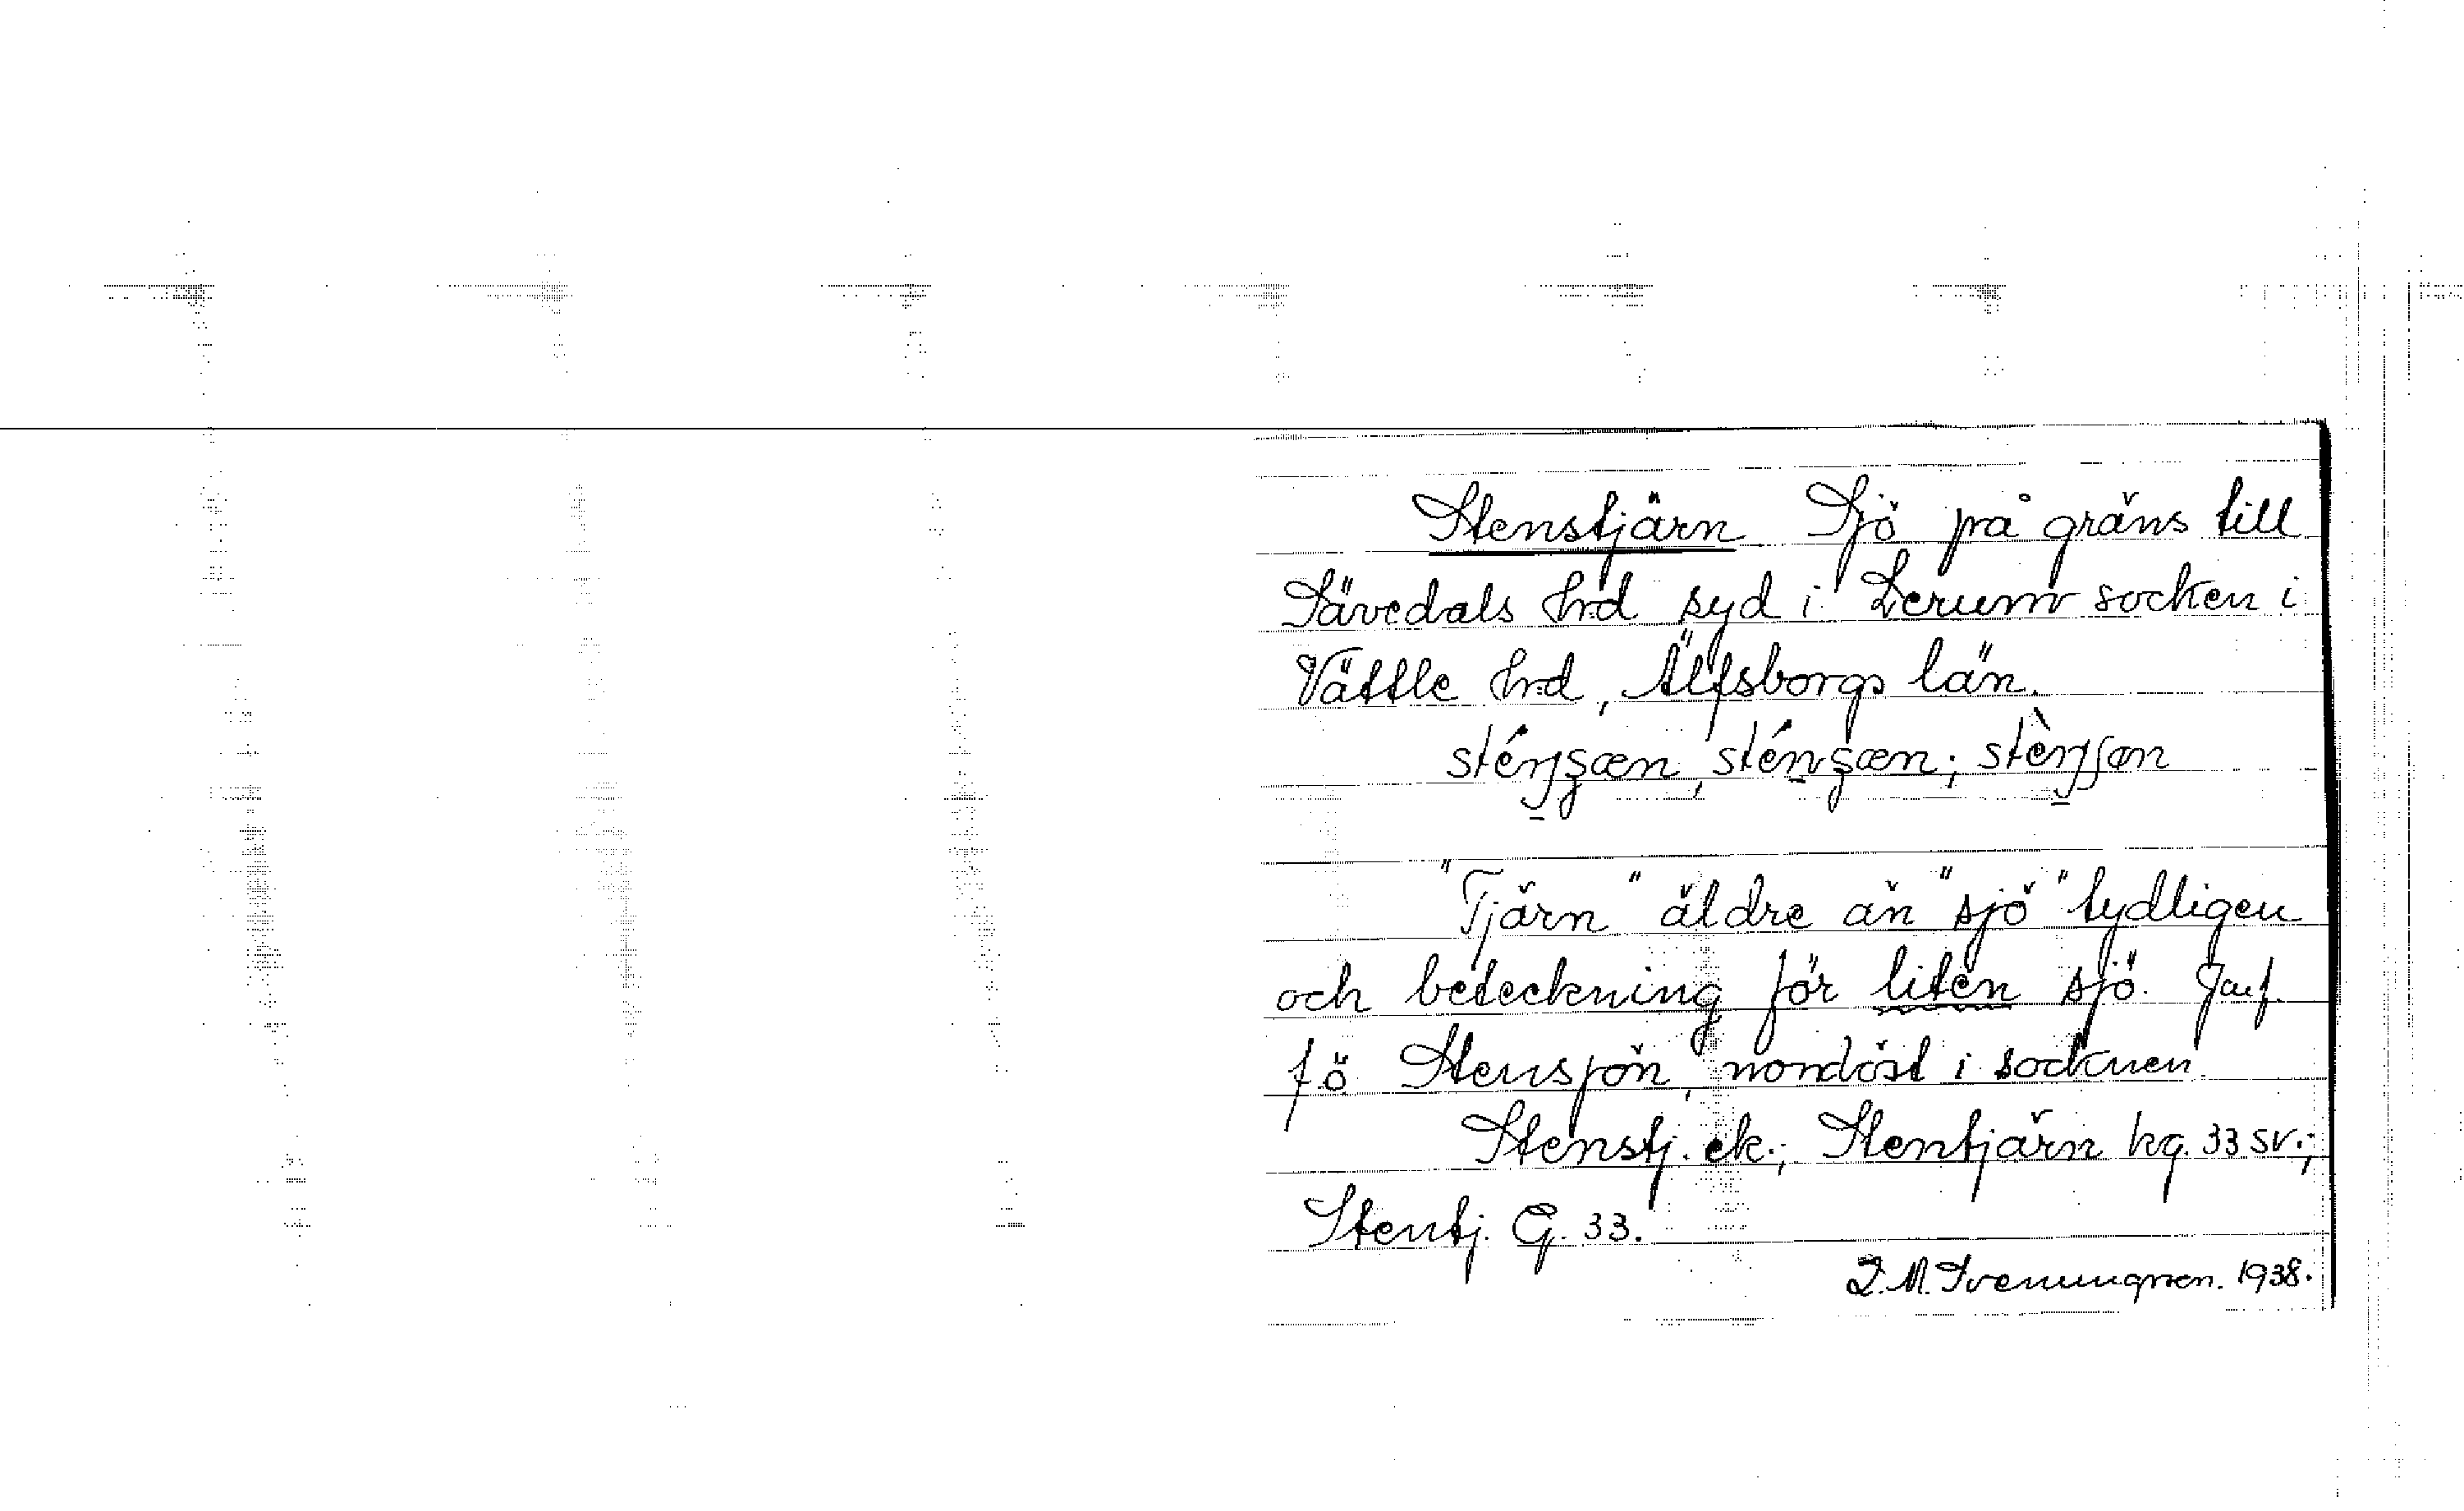 Stenstjärn Sjö på gräns till
Sävedals hrd syd i Lerum socken i
Vättle hrd, Älfsborgs län.
"Tjärn" äldre än "sjö" tydligen
och beteckning för liten sjö. Jmf.
f.ö. Stensjön, nordöst i socknen.
Stenstj. ek.; Stentjärn kg. 33 sv.;
Stentj. G. 33.
1938.